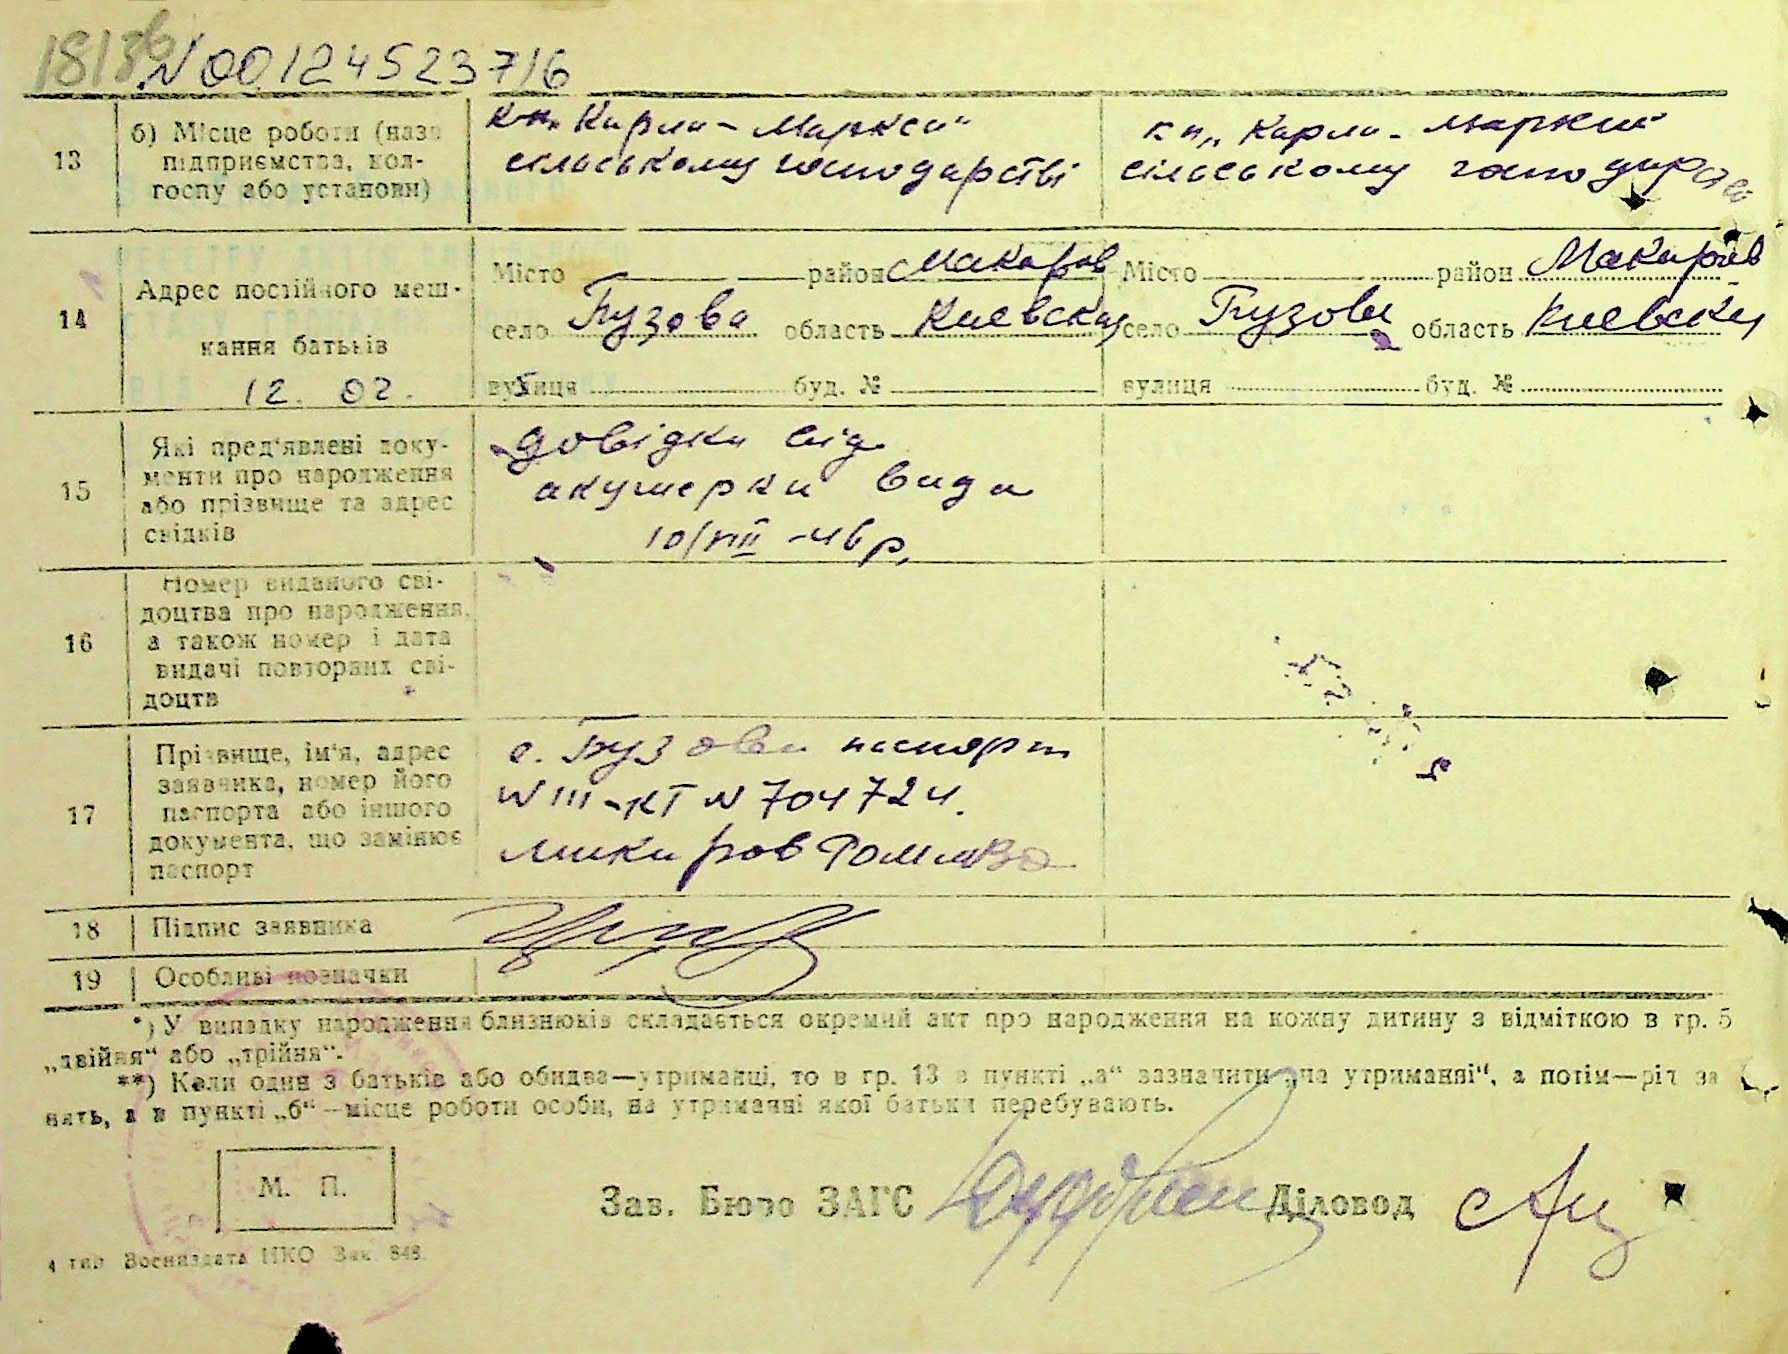 1813б
N 00124523716
13
б) Місце роботи (назв
підприємства, кол-
госпу або установи)
к-п „Карла-Маркса"
сільському господарстві
к-п „Карла-Маркса"
сільському господарстві
14
Адрес постійного меш-
кання батьків
12. 02.
Місто район Макаров
село Гузова область Киевская
вулиця буд. №
Місто район Макаров
село Гузова область Киевская
вулиця буд. №
15
Які пред'явлені доку-
менти про народження
або прізвище та адрес
свідків
довідка від
акушерки видана
10/VIII-46 р.
16
Номер виданого сві-
доцтва про народження,
а також номер і дата
видачі повторних сві-
доцтв
17
Прізвище, ім'я, адрес
заявника, номер його
паспорта або іншого
документа, що замінює
паспорт
с. Гузова паспорт
III-КТ N 704724.
Макаров
18
Підпис заявника
19
Особливі позначки
*) У випадку народження близнюків складається окремий акт про народження на кожну дитину з відміткою в гр. 5
„двійня" або „трійня".
**) Коли один з батьків або обидва—утриманці, то в гр. 13 в пункті „а" зазначити „на утриманні", а потім—рід за
нять, а в пункті „б"—місце роботи особи, на утриманні якої батьки перебувають.
М. П.
Зав. Бюро ЗАГС
Діловод
4 тип. Воениздата НКО Зак. 848.